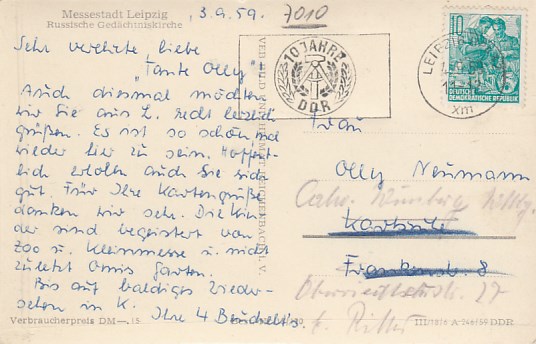 Messestadt Leipzig
Russische Gedächtniskirche
3.9.59.
7010
Sehr verehrte liebe
"Tante Olly"
Auch diesmal möchten
wir Sie aus L. recht herzlich
grüßen. Es ist so schön mal
wieder hier zu sein. Hoffent-
lich erholen auch Sie sich
gut. Für Ihre Kartengrüße
danken wir sehr. Die Kin
der sind begeistert von
Zoo u. Kleinmesse u. nicht
zuletzt Omis Garten.
Bis auf baldiges Wieder-
sehen in K. Ihre 4
Verbraucherpreis DM —.15
10 JAHRE
DDR
LEIPZIG
10
DEUTSCHE
DEMOKRATISCHE REPUBLIK
Frau
Olly Neumann
Calw.
Karlsruhe
Frankenstr. 8
27
b. Ritter
III/18/6 A 246/59 DDR